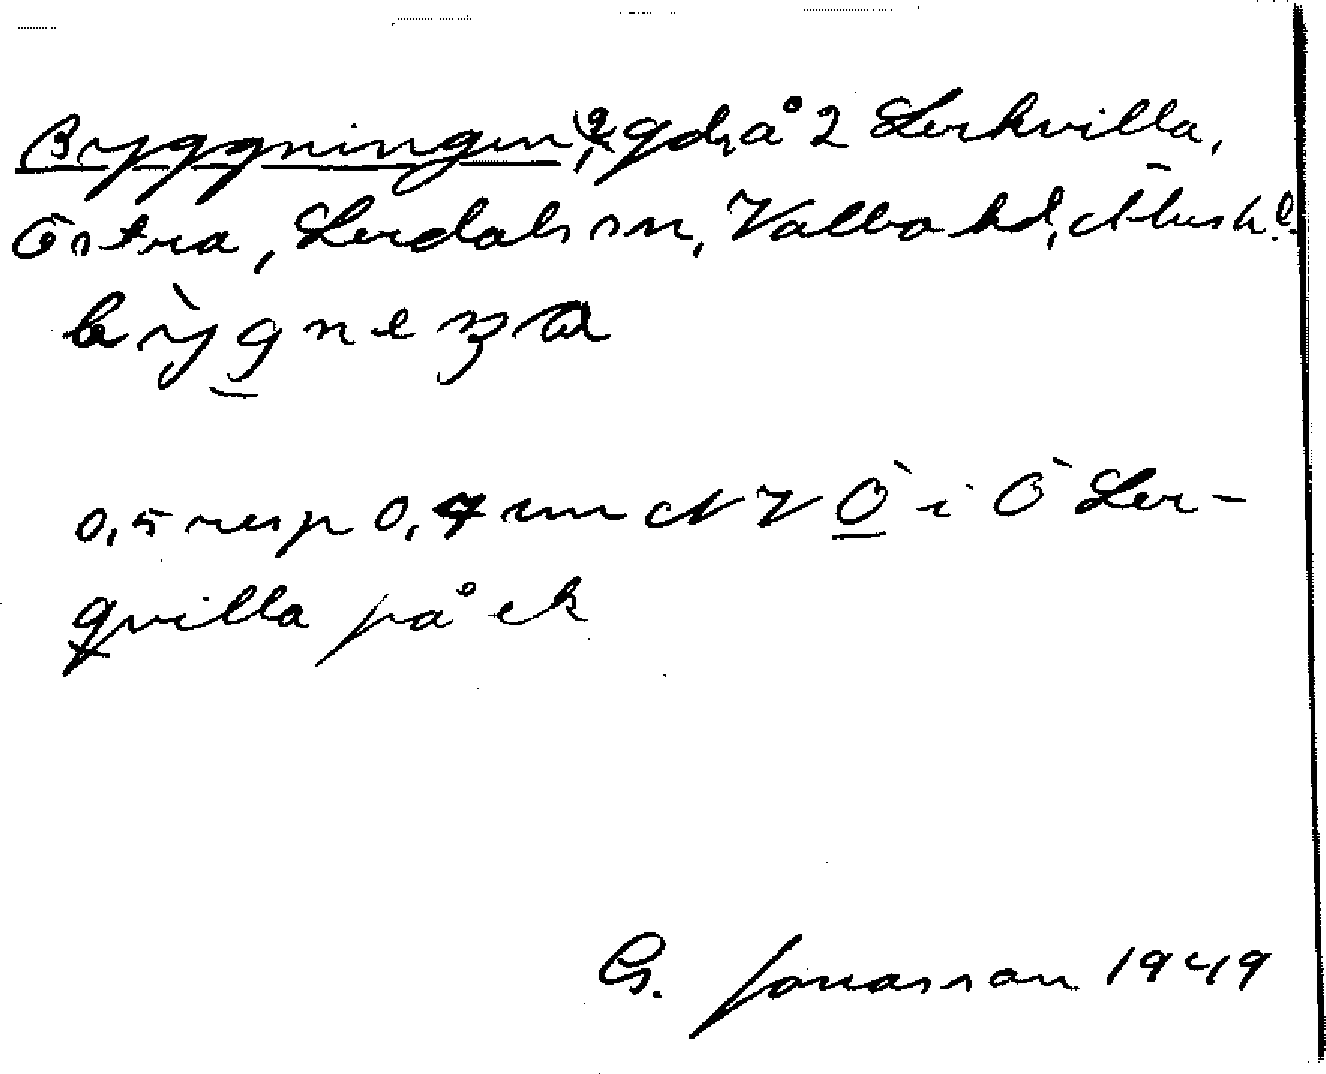 Byggningen, 2 gdr å 2 Lerkvilla,
Östra, Lerdals sn, Valbo hd, Älvsb. l.
bỳgneŋa
0,5 resp 0,7 km NV Ö i Ö Ler-
qvilla på ek
G. Jonasson 1949